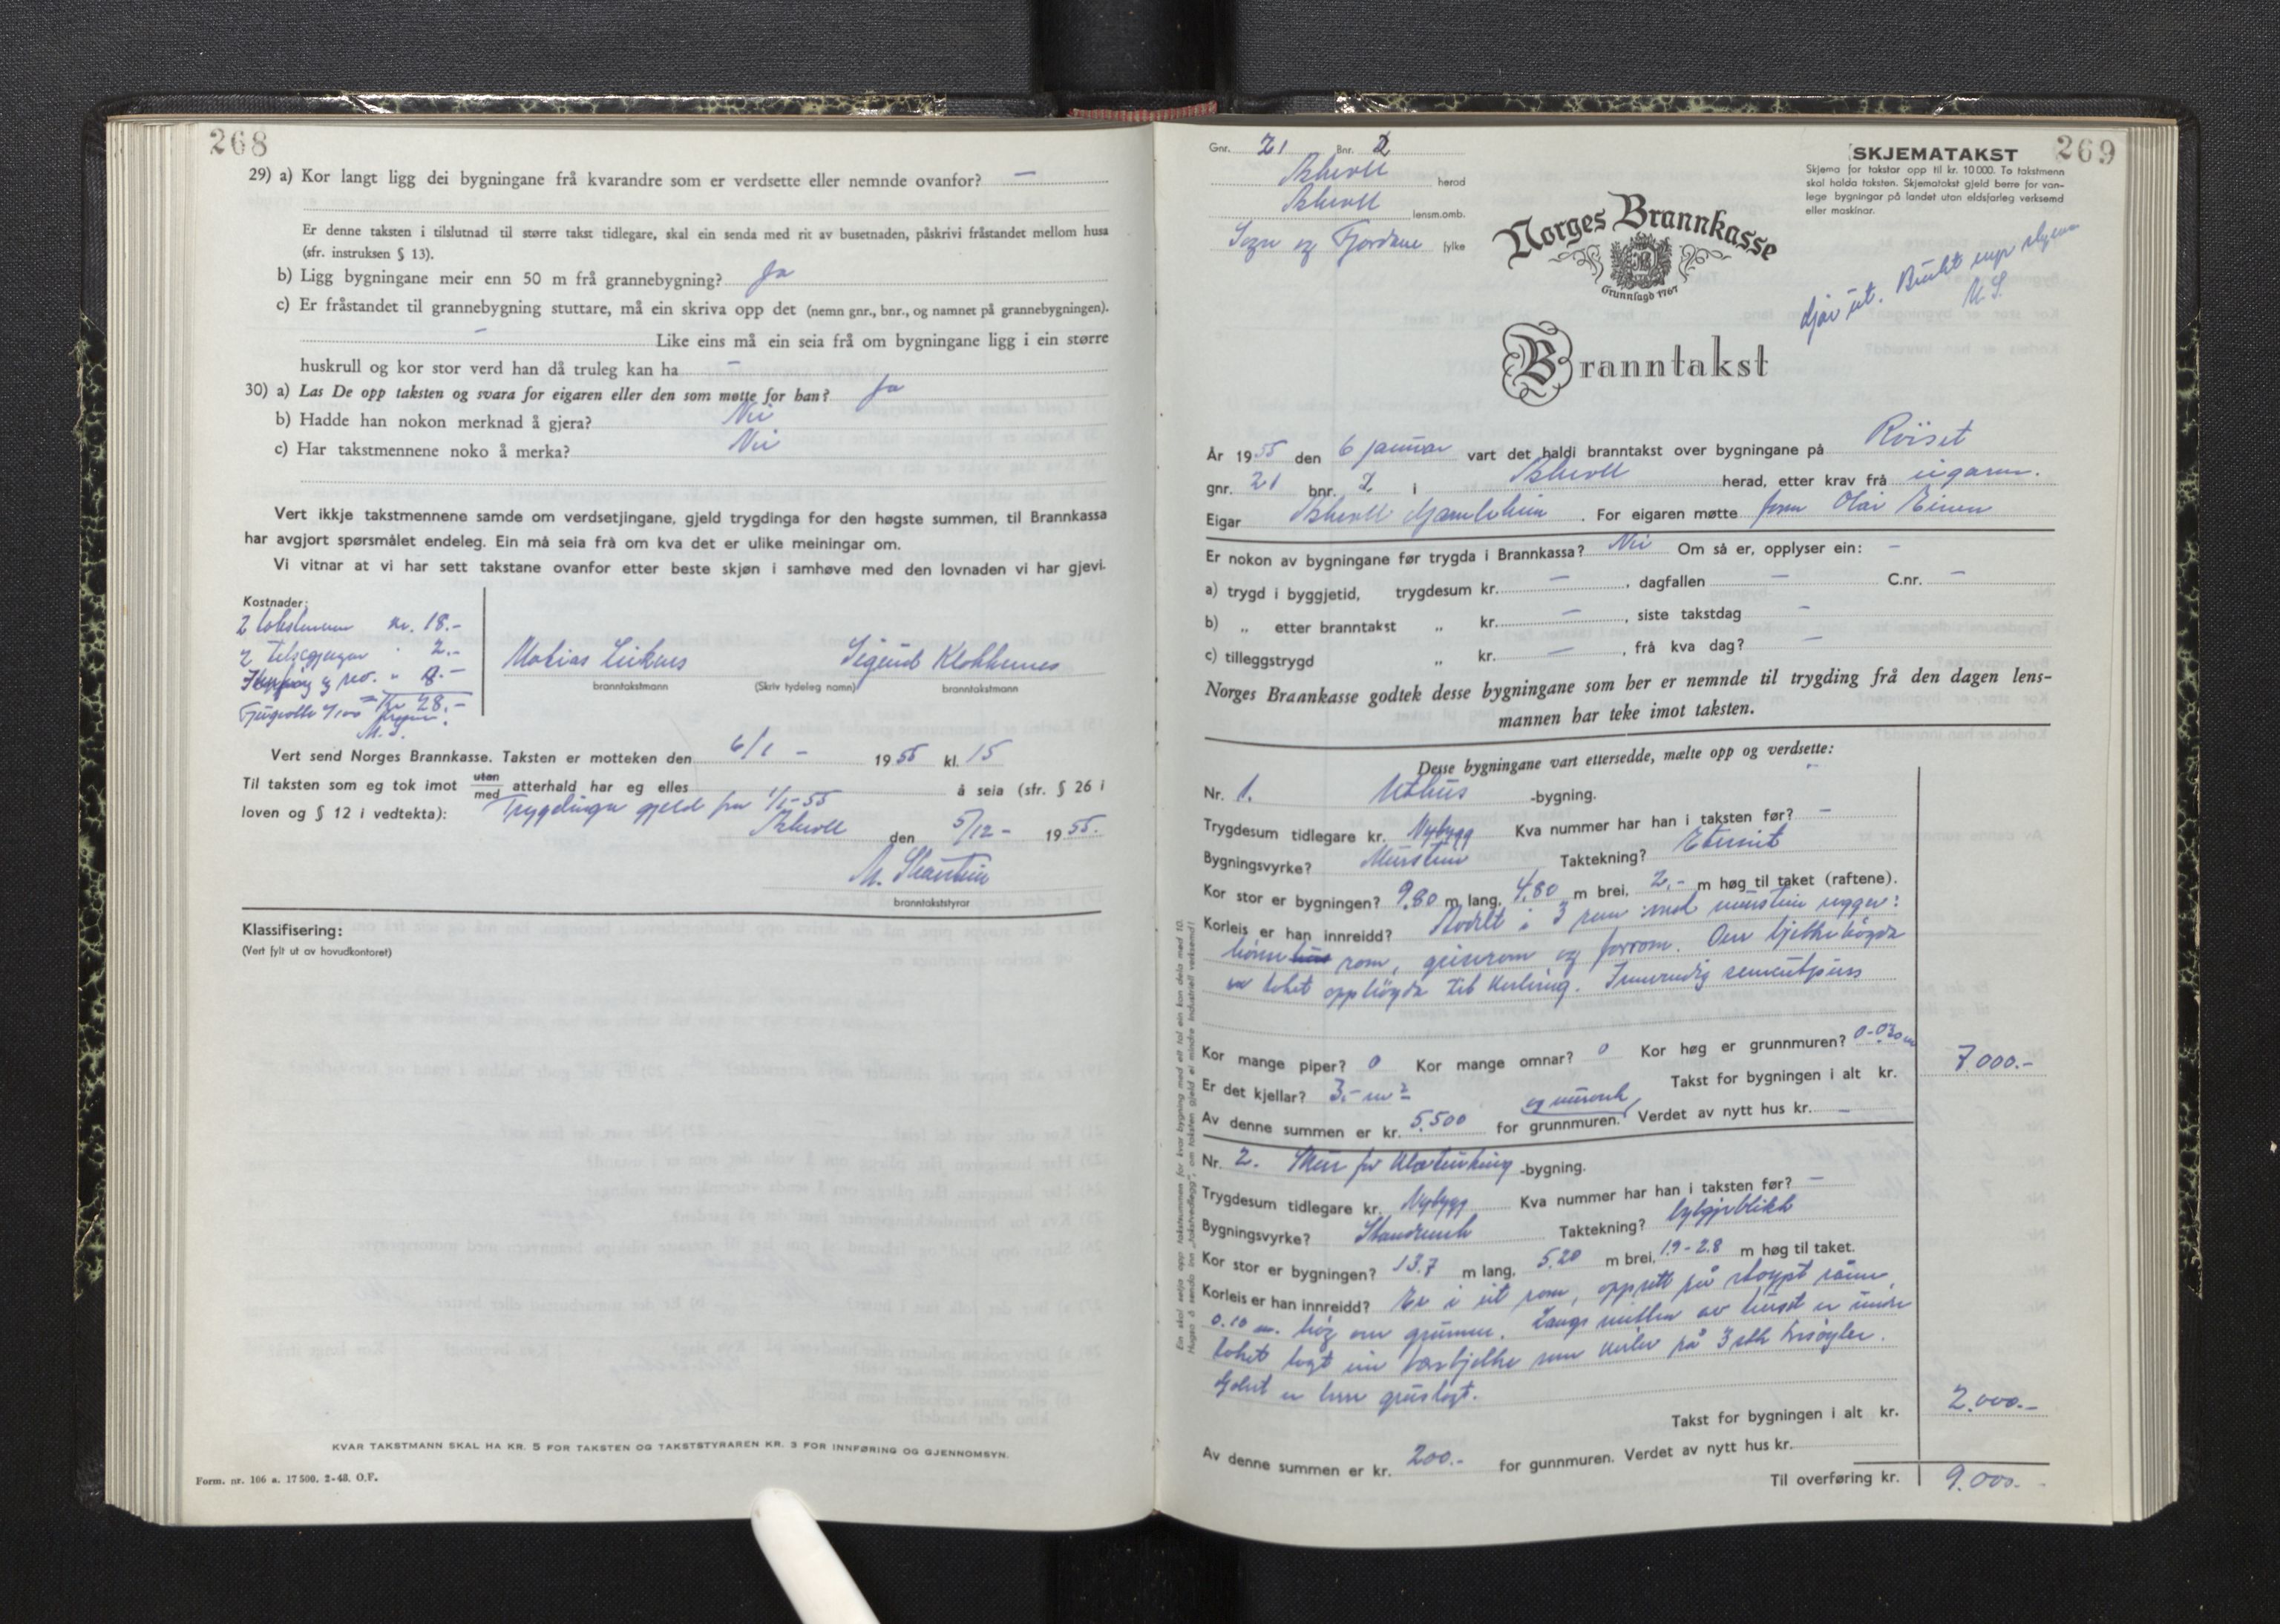 268
29) a) Kor langt ligg dei bygningane frå kvarandre som er verdsette eller nemnde ovanfor? —
Er denne taksten i tilslutnad til større takst tidlegare, skal ein senda med rit av busetnaden, påskrivi fråstandet mellom husa
(sfr. instruksen § 13).
b) Ligg bygningane meir enn 50 m frå grannebygning? Ja
c) Er fråstandet til grannebygning stuttare, må ein skriva opp det (nemn gnr., bnr., og namnet på grannebygningen).
— Like eins må ein seia frå om bygningane ligg i ein større
huskrull og kor stor verd han då truleg kan ha —
30) a) Las De opp taksten og svara for eigaren eller den som møtte for han? Ja
b) Hadde han nokon merknad å gjera? Nei
c) Har takstmennene noko å merka? Nei
Vert ikkje takstmennene samde om verdsetjingane, gjeld trygdinga for den høgste summen, til Brannkassa
har avgjort spørsmålet endeleg. Ein må seia frå om kva det er ulike meiningar om.
Vi vitnar at vi har sett takstane ovanfor etter beste skjøn i samhøve med den lovnaden vi har gjevi.
Kostnader:
2 takstmenn kr. 18.-
2 " 2.-
og " 8.-
Kr 28.-
M. S.
Mobias Sigurd Klokkernes
branntakstmann (Skriv tydeleg namn) branntakstmann
Vert send Norges Brannkasse. Taksten er motteken den 6/1 - 1955 kl. 15
Til taksten som eg tok imot uten/med atterhald har eg elles å seia (sfr. § 26 i
loven og § 12 i vedtekta): Trygdinga gjeld frå 1/1-55
Askvoll den 5/12 - 1955.
M.
branntakststyrar
Klassifisering:
(Vert fylt ut av hovudkontoret)
KVAR TAKSTMANN SKAL HA KR. 5 FOR TAKSTEN OG TAKSTSTYRAREN KR. 3 FOR INNFØRING OG GJENNOMSYN.
Form. nr. 106 a. 17 500. 2-48. O.F.
269
Gnr. 21 Bnr. 2
Askvoll herod
Askvoll lensm.omb.
Sogn og Fjordane fylke
SKJEMATAKST
Skjema for takstar opp til kr. 10 000. To takstmenn
skal halda taksten. Skjematakst gjeld berre for van-
lege bygningar på landet utan eldsfarleg verksemd
eller maskinar.
Norges Brannkasse
Grunnlagd 1767
M. S.
Branntakst
År 1955 den 6 januar vart det haldi branntakst over bygningane på Röiset
gnr. 21 bnr. 2 i Askvoll herad, etter krav frå eigaren.
Eigar Askvoll Gamleheim. For eigaren møtte Olai
Er nokon av bygningane før trygda i Brannkassa? Nei Om så er, opplyser ein: —
a) trygd i byggjetid, trygdesum kr. —, dagfallen — C.nr. —
b) „ etter branntakst „ kr. —, siste takstdag —
c) tilleggstrygd „ kr. —, frå kva dag? —
Norges Braankasse godtek desse bygningane som her er nemnde til trygding frå den dagen lens-
mannen har teke imot taksten.
Desse bygningane vart ettersedde, mælte opp og verdsette:
Nr. 1. Uthus -bygning.
Trygdesum tidlegare kr. Nybygg Kva nummer har han i taksten før? —
Bygningsvyrke? Murstein Taktekning? Eternit
Kor stor er bygningen? 9.80 m lang, 4.80 m brei, 2.- m høg til taket (raftene).
Korleis er han innreidd? Avdelt i 3 rom med murstein vegger:
hønse rom, griserom og forrom. Over bjelkehögda
er taket opphögda til kvelving. Innvendig sementpuss
Kor mange piper? 0 Kor mange omnar? 0 Kor høg er grunnmuren? 0-0.30 m
Er det kjellar? 3.- m² Takst for bygningen i alt kr. 7.000.-
og murverk
Av denne summen er kr. 5.500 for grunnmuren. Verdet av nytt hus kr. —
Nr. 2. Skur for -bygning.
Trygdesum tidlegare kr. Nybygg Kva nummer har han i taksten før? —
Bygningsvyrke? Standverk Taktekning? bylgjeblikk
Kor stor er bygningen? 13.7 m lang, 5.20 m brei, 1.9-2.8 m høg til taket.
Korleis er han innreidd? Er i eit rom, oppsett på stoypt
0.10 m. høg over grunnen. Langs midten av huset er under
taket lagt ein berebjelke som kviler på 3 stk
Golvet er bare gruslagt.
Takst for bygningen i alt kr. 2.000.-
Av denne summen er kr. 200.- for gunnmuren. Verdet av nytt hus kr.
Til overføring kr. 9.000.-
Ein skal setja opp takstsummen for kvar bygning med eit tal ein kan dela med 10.